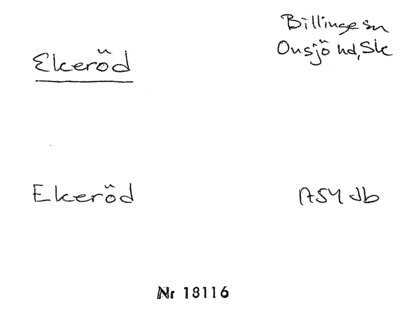 Ekeröd
Billinge sn
Onsjö hd, Sk
Ekeröd
Nr 18116